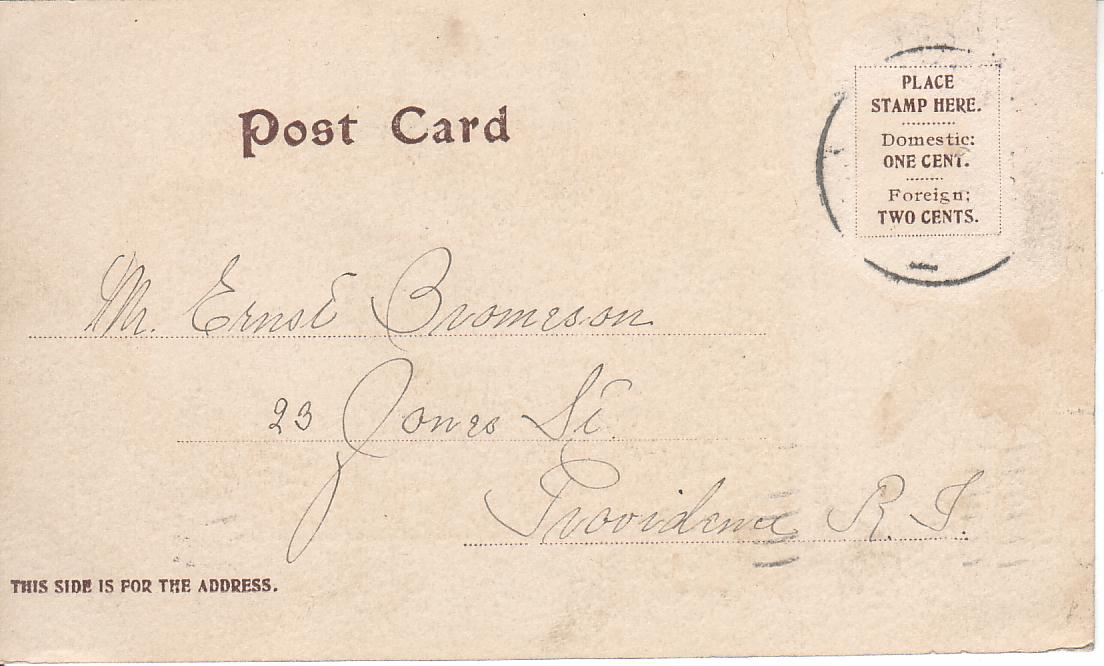 Post Card
PLACE
STAMP HERE.
Domestic:
ONE CENT.
Foreign:
TWO CENTS.
Mr. Ernst Bromeson
23 Jones St.
Providence R. I.
THIS SIDE IS FOR THE ADDRESS.